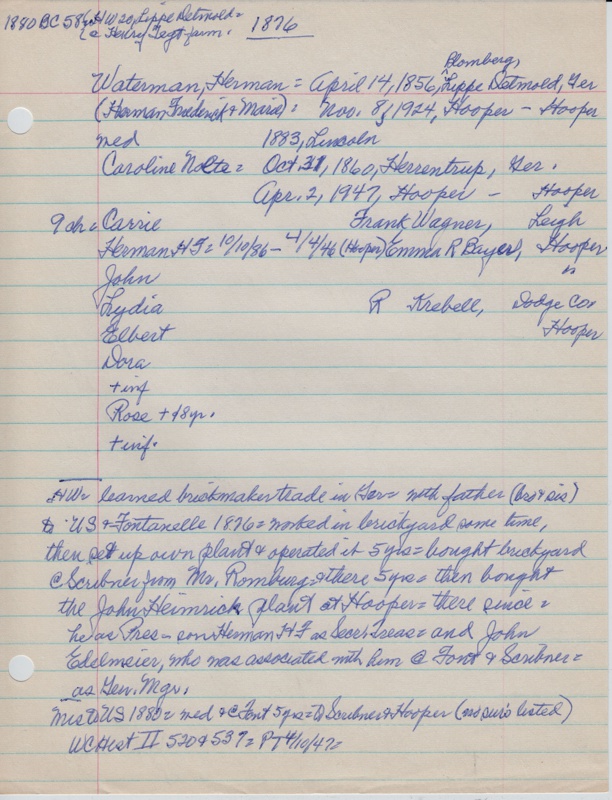 1880 BC 586 = HW 20, Lippe Detmold =
@ Henry Tegt farm. 1876
Blomberg,
Waterman, Herman = April 14, 1856, Lippe Detmold, Ger
(Herman Frederick & Maria) = Nov. 8, 1924, Hooper - Hooper
med 1883, Lincoln
Caroline Nolte = Oct. 31, 1860, Herrentrup, Ger.
Apr. 2, 1947, Hooper - Hooper
9 ch = Carrie Frank Wagner, Leigh
Herman H F = 10/10/86 - 4/4/46 (Hooper) Emma R Bayer, Hooper
John "
Lydia R Krebell, Dodge Cox
Elbert Hooper
Dora
+ inf
Rose + 18yr.
+ inf.
HW = learned brickmaker trade in Ger = with father (bro & sis)
to US & Fontanelle 1876 = worked in brickyard some time,
then set up own plant & operated it 5 yrs = bought brickyard
@ Scribner from Mr. Romburg = & there 5 yrs = then bought
the John Heimrick plant at Hooper = there since =
he as Pres - son Herman H F as Secr. Treas = and John
Edelmaier, who was associated with him @ Font & Scribner =
as Gen. Mgr.
Mrs to US 1880 = med & @ Font 5 yrs = to Scribner & Hooper (no surs listed)
WCHist II 520 & 537 = PT 4/10/47 =